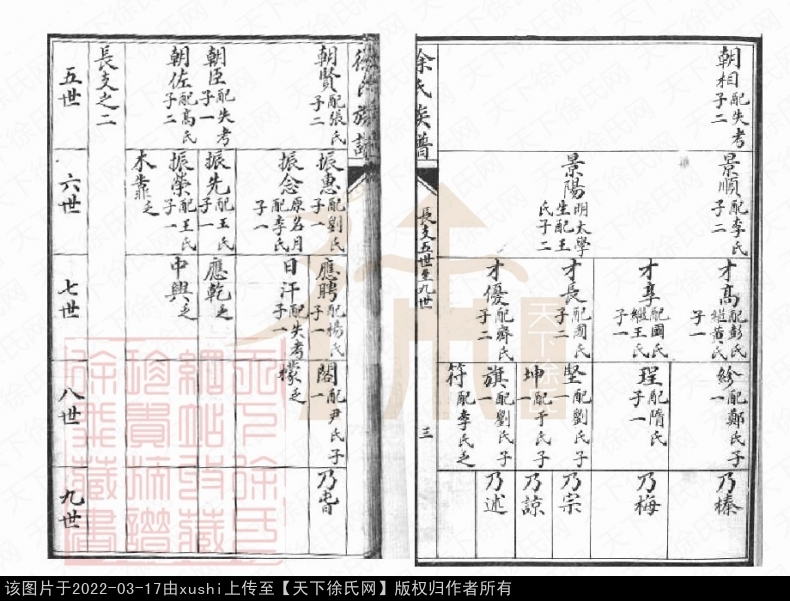 朝相配失考子二
景順配李氏子二
景陽明太學生配王氏子二
才高配彭氏繼黄氏子一
才享配國氏繼王氏子一
才長配周氏子二
才優配齊氏子二
紾配鄭氏子一
珵配隋氏子一
堅配劉氏子一
坤配于氏子一
旗配劉氏子一
符配李氏乏
乃榛
乃梅
乃宗
乃諒
乃述
徐氏族譜
長支五世至九世
三
徐氏族譜
朝賢配張氏子二
朝臣配失考子一
朝佐配高氏子二
長支之二
五世
振惠配劉氏子一
振念原名月配李氏子一
振先配王氏子一
振榮配王氏子一
木靠乏
六世
應聘配楊氏子一
日汗配失考子一
應乾乏
中興乏
七世
閣配尹氏子一
檬乏
八世
九世
天下徐氏网
该图片于2022-03-17由xushi上传至【天下徐氏网】版权归作者所有